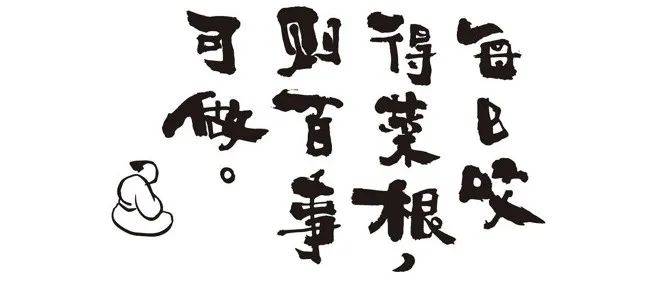 每日咬
得菜根，
则百事
可做。